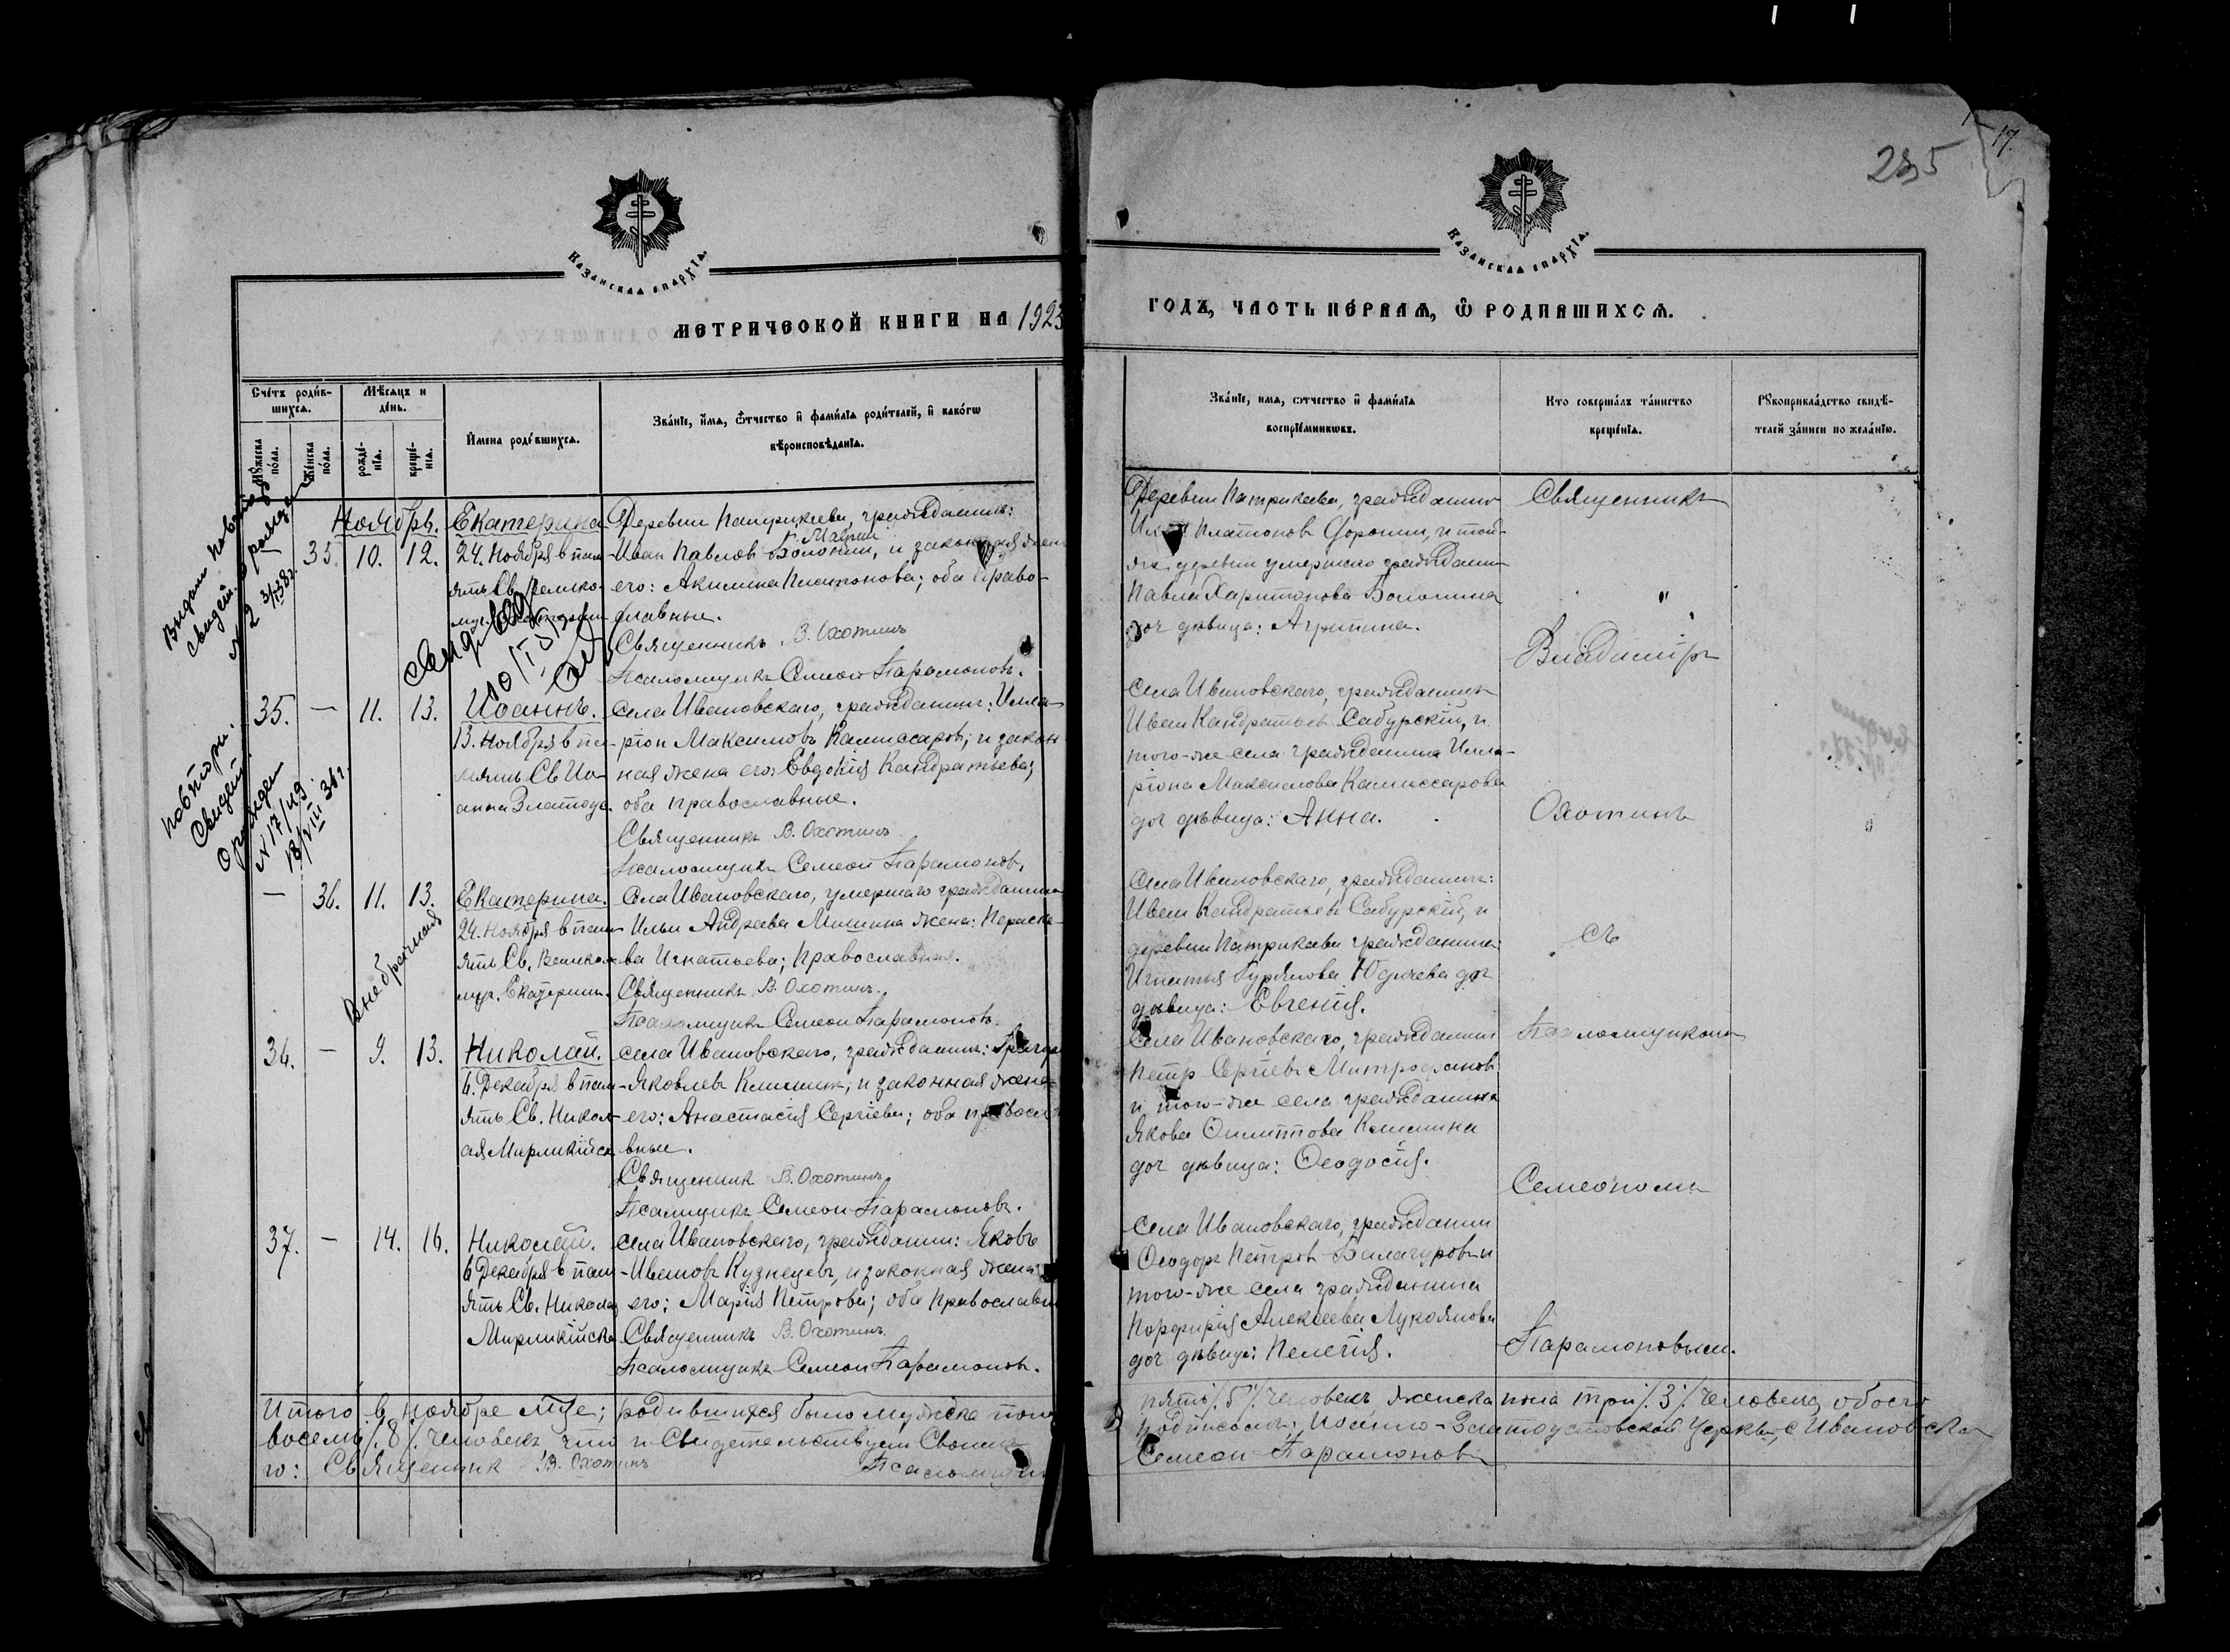 235
17.
КАЗАНСКАѦ ЕПАРХІѦ.
КАЗАНСКАѦ ЕПАРХІѦ.
МЕТРИЧЕСКОЙ КНИГИ НА 1923
ГОДЪ, ЧАСТЬ ПЕРВАѦ, Ѽ РОДИВШИХСѦ.
Счетъ родив-
шихсѧ.
Мѣсѧцъ и
день.
Мꙋжеска
пола.
Женска
пола.
рожде-
нїѧ.
креще-
нїѧ.
Имена родившихсѧ.
Званїе, имѧ, ѿтчество и фамилїѧ родителей, и какогѡ
вѣроисповѣданїѧ.
Званїе, имѧ, ѿтчество и фамилїѧ
воспрїемникѡвъ.
Кто совершалъ таинство
крещенїѧ.
Рꙋкоприкладство свидѣ-
телей записи по желанїю.
Ноябрь.
35. 10. 12.
Екатерина
24. Ноября в пам-
ять Св. Велико-
муч. Екатерин
Деревни Патрикеева, гражданинъ:
Иван Павлов Болонин, и законная жен
его: Акилина Платонова; оба Право-
славные.
Священникъ В. Охотинъ
Псаломщикъ Семеон Парамоновъ.
Деревни Патрикеева, гражданин
Платонов Доронин, и той-
же деревни умершаго граждани
Павла Харитонова Болонина
доч девица: Агрипина.
Священникъ
"
Владимiръ
35. — 11. 13.
Иоаннъ.
13. Ноября в па-
мять Св Ио-
анна Златоус.
Села Ивановскаго, гражданинъ: Илла-
рiон Максимовъ Камиссаровъ; и закон-
ная жена его: Евдокiя Кандратьева;
оба православные.
Священникъ В. Охотинъ
Псаломщикъ Семеон Парамонов.
Села Ивановскаго, гражданинъ
Иван Кандратьевъ Сабурскiй, и
того-же села гражданина Илла-
рiона Максимова Камиссарова
доч девица: Анна.
Охотинъ
— 36. 11. 13.
Внебрачная
Екатерина.
24. Ноября в пам-
ять Св. Велико-
муч. Екатерин.
Села Ивановскаго, умершаго гражданина
Ильи Андреева Мишина жена: Параске-
ва Игнатьева; Православная.
Священникъ В. Охотинъ.
Псаломщикъ Семеон Парамоновъ.
Села Ивановскаго, гражданинъ:
Иван Кандратьевъ Сабурскiй, и
деревни Патрикеева гражданина
Игнатья Гурьянова доч
девица: Евгенiя.
съ
36. — 9. 13.
Николай.
6. Декабря в пам-
ять Св. Никол-
ая Мирликiйск
Села Ивановскаго, гражданинъ: Григор
Яковлевъ Климин; и законная жена
его: Анастасiя Сергiева; оба правосла-
вные.
Священникъ В. Охотинъ
Псаломщикъ Семеон Парамоновъ.
Села Ивановскаго, гражданин
Петр Сергiевъ Митрофанов
и того-же села гражданина
Якова Филиппова Климина
доч девица: Феодосiя.
Псаломщикомъ
Семеономъ
37. — 14. 16.
Николай.
6 Декабря в пам-
ять Св. Никола
Мирликiйска
Села Ивановскаго, гражданин: Яковъ
Ивановъ Кузнецовъ, и законная жена
его; Марiя Петрова; оба православн
Священникъ В. Охотинъ.
Псаломщикъ Семеон Парамоновъ.
Села Ивановскаго, гражданин
Феодоръ Петров Балагуровъ и
того-же села гражданина
Порфирiя Алексеева Лукоянова
доч девица: Пелагiя.
Парамоновым.
Итого в Ноябре м-це; родившихся было мужска пола
пять /.5./ человекъ женска пола три /.3./ человека, обоего
восемь /.8./ человекъ, что и свидетельствуем своим
подписом: Иоанно-Златоустовской Церкви, с Ивановска-
го: Священник В. Охотинъ Псаломщик
Семеон Парамоновъ